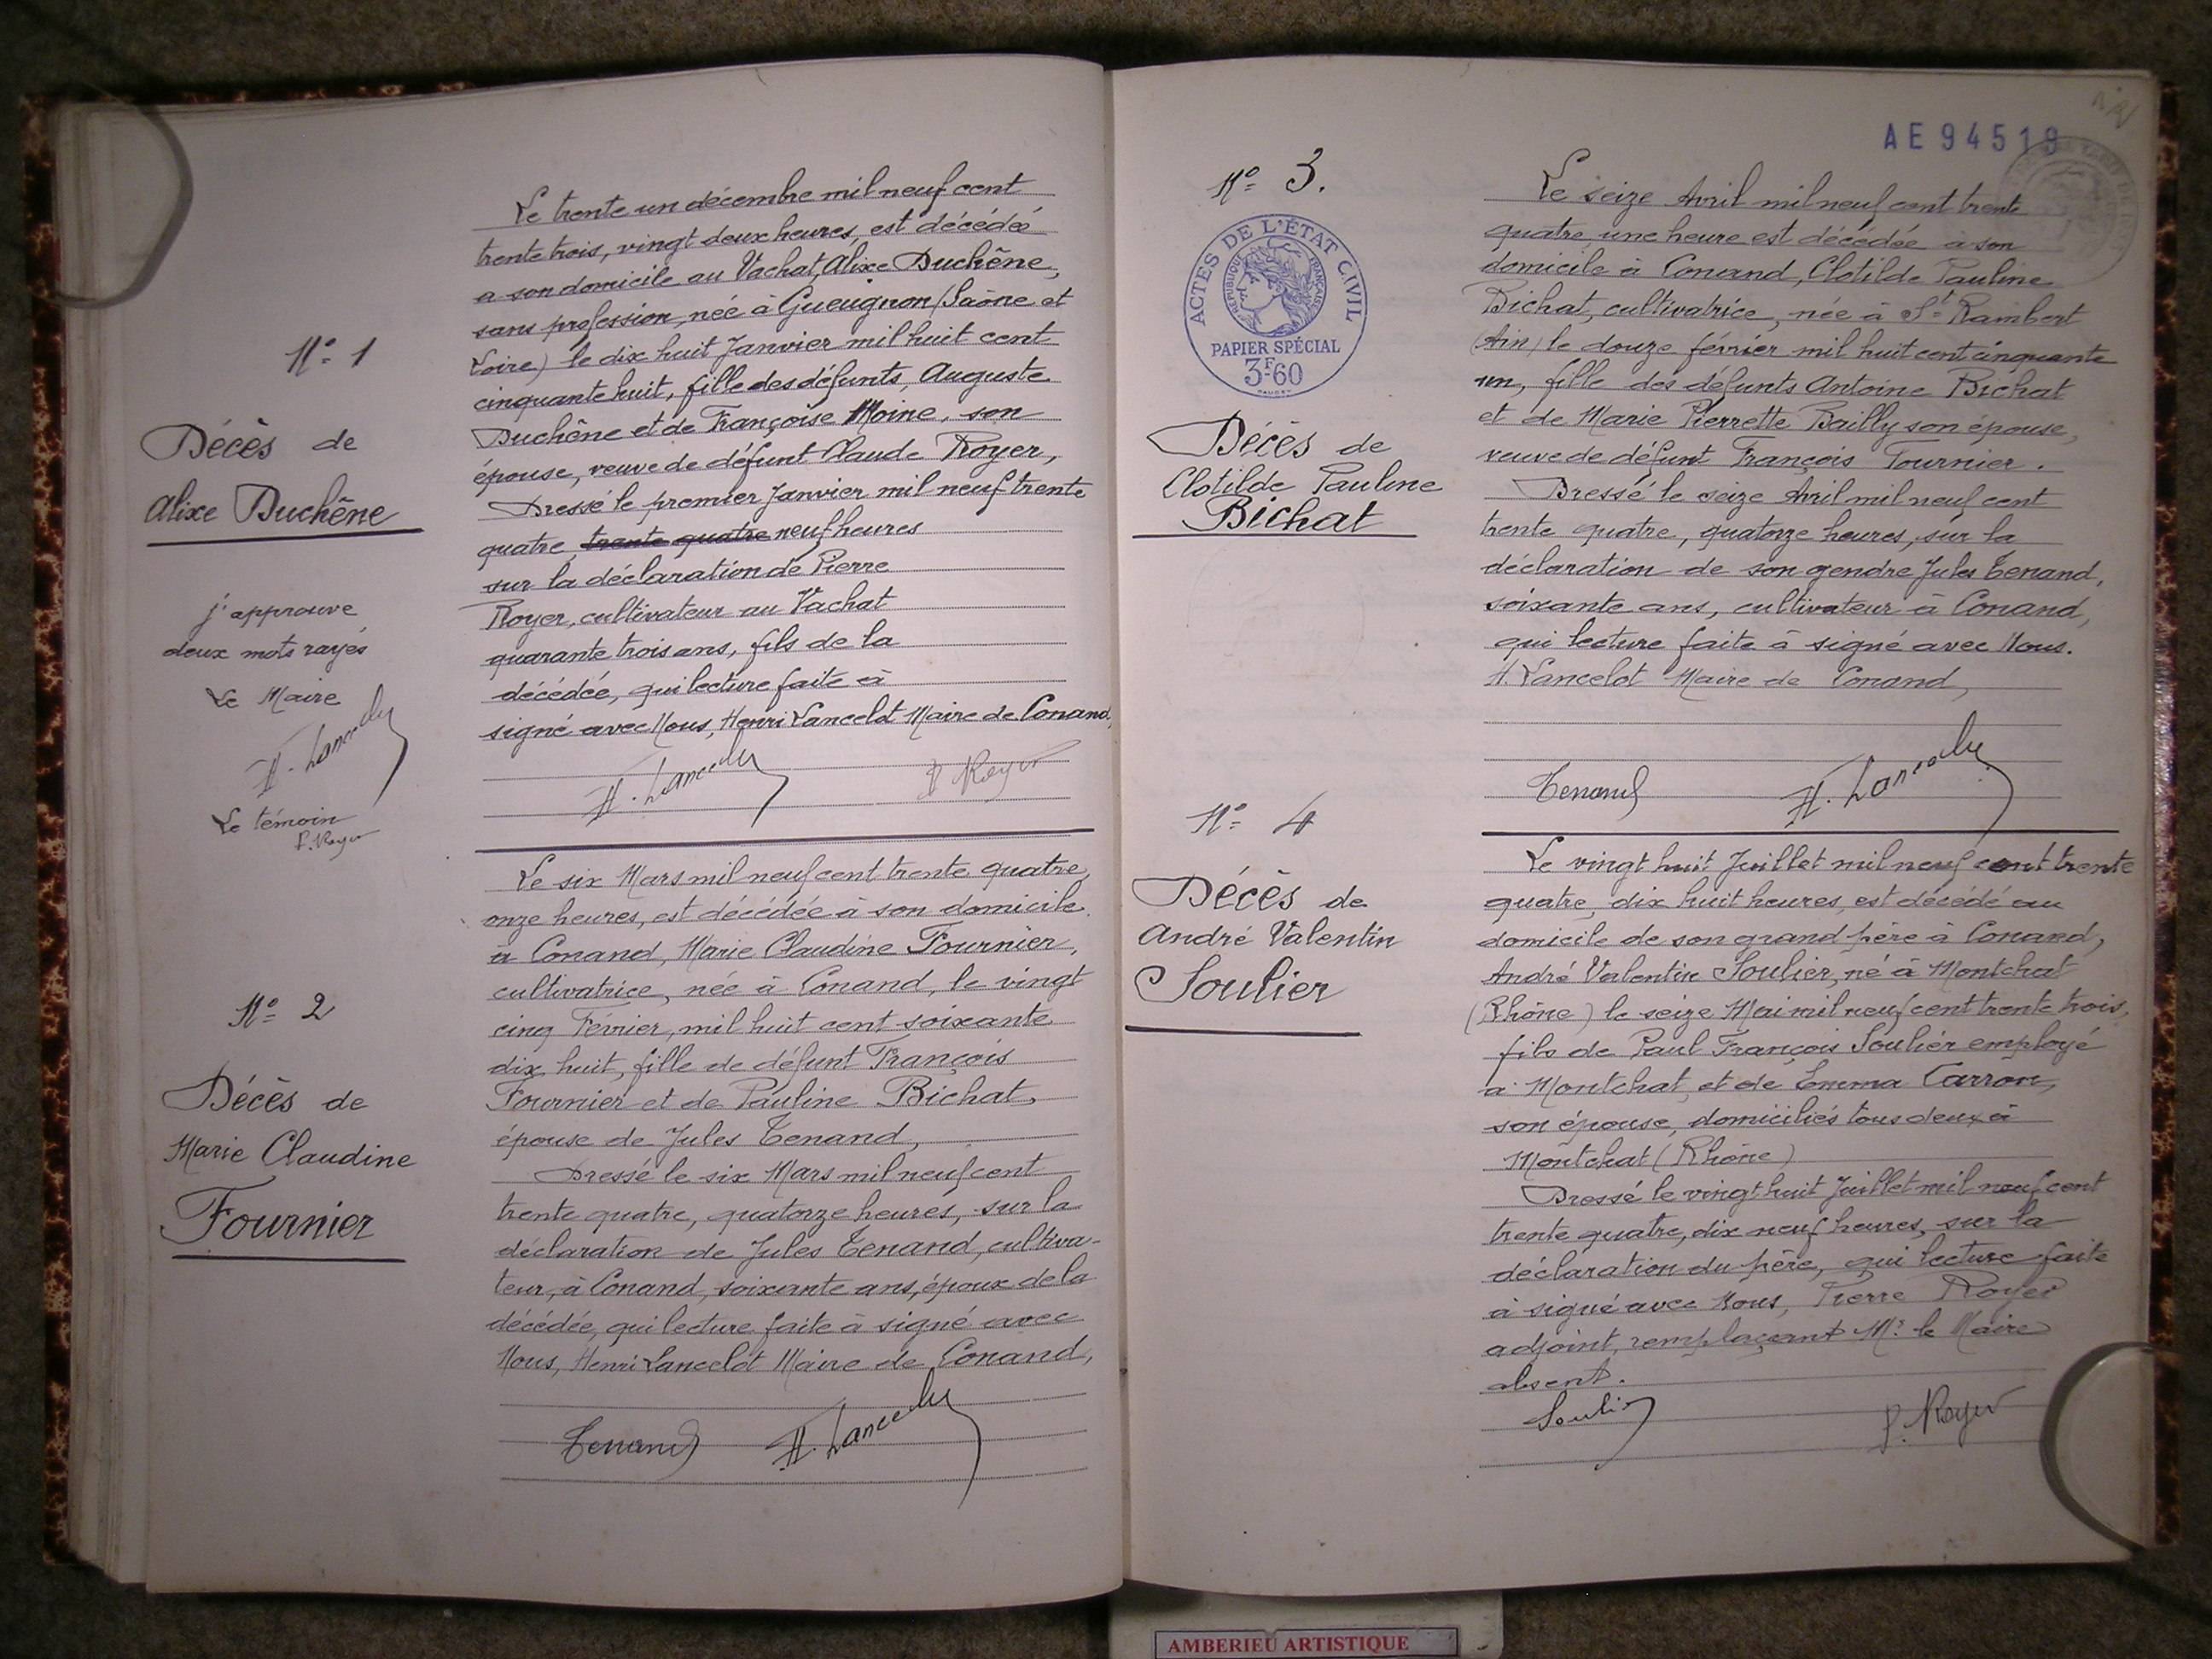 Le trente un décembre mil neuf cent
trente trois, vingt deux heures, est décédée
a son domicile au Vachat, Alixe Duchêne,
sans profession, née à Gueugnon (Saône et
Loire) le dix huit Janvier mil huit cent
cinquante huit, fille des défunts, Auguste
Duchêne et de Françoise Moine, son
épouse, veuve de défunt Claude Royer,
Dressé le premier Janvier mil neuf trente
quatre, trente quatre neuf heures
sur la déclaration de Pierre
Royer, cultivateur au Vachat
quarante trois ans, fils de la
décédée, qui lecture faite à
signé avec Nous, Henri Lancelot Maire de Conand,
H. Lancelot
P. Royer
N° 1
Décès de
Alixe Duchêne
j'approuve
deux mots rayés
Le Maire
H. Lancelot
Le témoin
P. Royer
Le six Mars mil neuf cent trente quatre,
onze heures, est décédée à son domicile
à Conand, Marie Claudine Fournier,
cultivatrice, née à Conand, le vingt
cinq Février, mil huit cent soixante
dix huit, fille de défunt François
Fournier et de Pauline Bichat,
épouse de Jules Tenand,
Dressé le six Mars mil neuf cent
trente quatre, quatorze heures, sur la
déclaration de Jules Tenand, cultiva-
teur, à Conand, soixante ans, époux de la
décédée, qui lecture faite à signé avec
Nous, Henri Lancelot Maire de Conand,
Tenand
H. Lancelot
N° 2
Décès de
Marie Claudine
Fournier
AE 94519
N° 3.
ACTES DE L'ÉTAT CIVIL
RÉPUBLIQUE FRANÇAISE
PAPIER SPÉCIAL
3F60
Décès de
Clotilde Pauline
Bichat
Le seize Avril mil neuf cent trente
quatre, une heure est décédée a son
domicile à Conand, Clotilde Pauline
Bichat, cultivatrice, née à St Rambert
(Ain) le douze février mil huit cent cinquante
un, fille des défunts Antoine Bichat
et de Marie Pierrette Bailly son épouse,
veuve de défunt François Fournier.
Dressé le seize Avril mil neuf cent
trente quatre, quatorze heures, sur la
déclaration de son gendre Jules Tenand,
soixante ans, cultivateur à Conand,
qui lecture faite à signé avec Nous.
H. Lancelot Maire de Conand,
Tenand
H. Lancelot
N° 4
Décès de
André Valentin
Soulier
Le vingt huit Juillet mil neuf cent trente
quatre, dix huit heures, est décédé au
domicile de son grand père à Conand,
André Valentin Soulier, né à Montchat
(Rhône) le seize Mai mil neuf cent trente trois,
fils de Paul François Soulier employé
à Montchat, et de Emma Carron,
son épouse, domiciliés tous deux à
Montchat (Rhône)
Dressé le vingt huit Juillet mil neuf cent
trente quatre, dix neuf heures, sur la
déclaration du père, qui lecture faite
à signé avec Nous, Pierre Royer
adjoint, remplaçant Mr le Maire
absent.
Soulier
P. Royer
AMBERIEU ARTISTIQUE